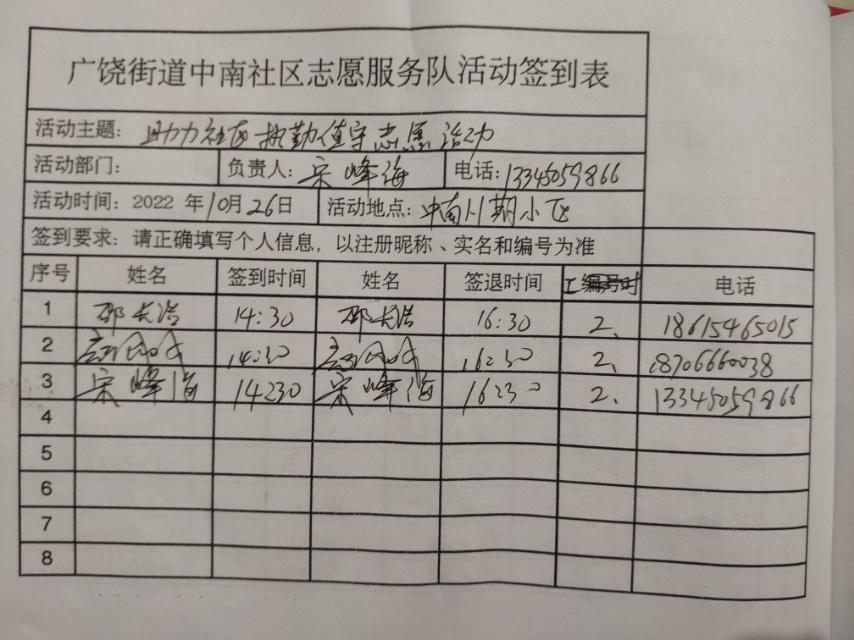 广饶街道中南社区志愿服务队活动签到表
活动主题: 助力社区执勤值守志愿活动
活动部门: 负责人: 宋峰海 电话: 13345059866
活动时间: 2022 年10月26日 活动地点: 中南 期小区
签到要求: 请正确填写个人信息, 以注册昵称、实名和编号为准
序号 姓名 签到时间 姓名 签退时间 工时 电话
1 邵长浩 14:30 邵长浩 16:30 2、 18615465015
2 14:30 16:30 2、 18706660038
3 宋峰海 14:30 宋峰海 16:30 2、 13345059866
4
5
6
7
8